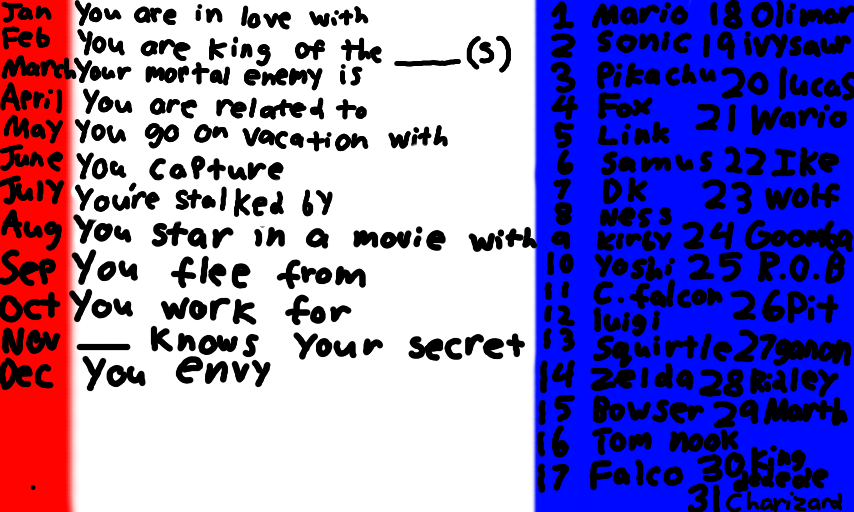 Jan You are in love with
Feb You are King of the ____(s)
March Your mortal enemy is
April You are related to
May You go on vacation with
June You capture
July You're stalked by
Aug You star in a movie with
Sep You flee from
Oct You work for
Nov ___ Knows Your secret
Dec You envy
1 Mario 18 Olimar
2 Sonic 19 ivysaur
3 Pikachu 20 lucas
4 Fox 21 Wario
5 Link
6 Samus 22 Ike
7 DK 23 Wolf
8 Ness
9 Kirby 24 Goomba
10 Yoshi 25 R.O.B
11 C. falcon 26 Pit
12 luigi
13 Squirtle 27 ganon
14 Zelda 28 Ridley
15 Bowser 29 Marth
16 Tom nook
17 Falco 30 King dedede
31 Charizard